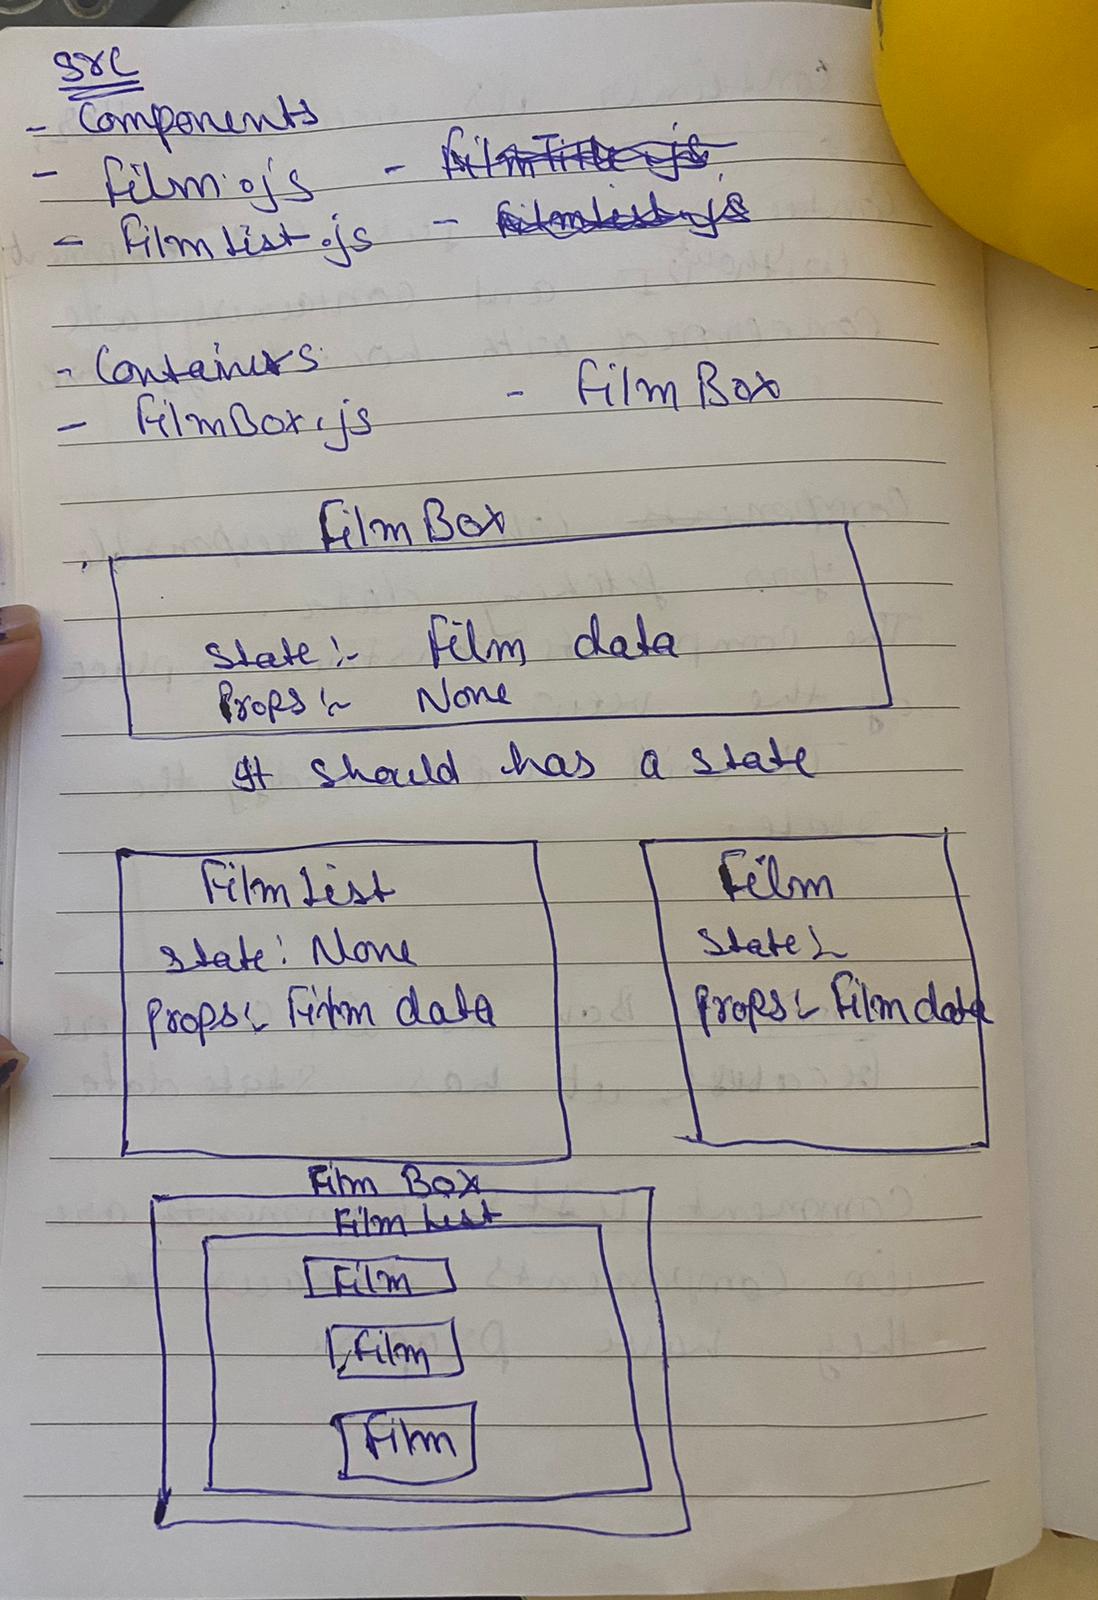 src
- Components
- Film.js - FilmTitle.js
- FilmList.js - FilmList.js
- Containers
- FilmBox.js - FilmBox
FilmBox
State :- Film data
Props :- None
It should has a state
FilmList
State : None
Props :- Film data
Film
State :-
Props :- Film data
Film Box
Film List
Film
Film
Film